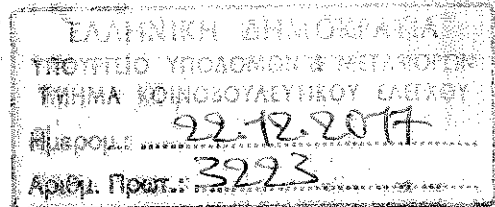 ΕΛΛΗΝΙΚΗ ΔΗΜΟΚΡΑΤΙΑ
ΥΠΟΥΡΓΕΙΟ ΥΠΟΔΟΜΩΝ & ΜΕΤΑΦΟΡΩΝ
ΤΜΗΜΑ ΚΟΙΝΟΒΟΥΛΕΥΤΙΚΟΥ ΕΛΕΓΧΟΥ
Ημερομ.: 22.12.2017
Αριθμ. Πρωτ.: 3223